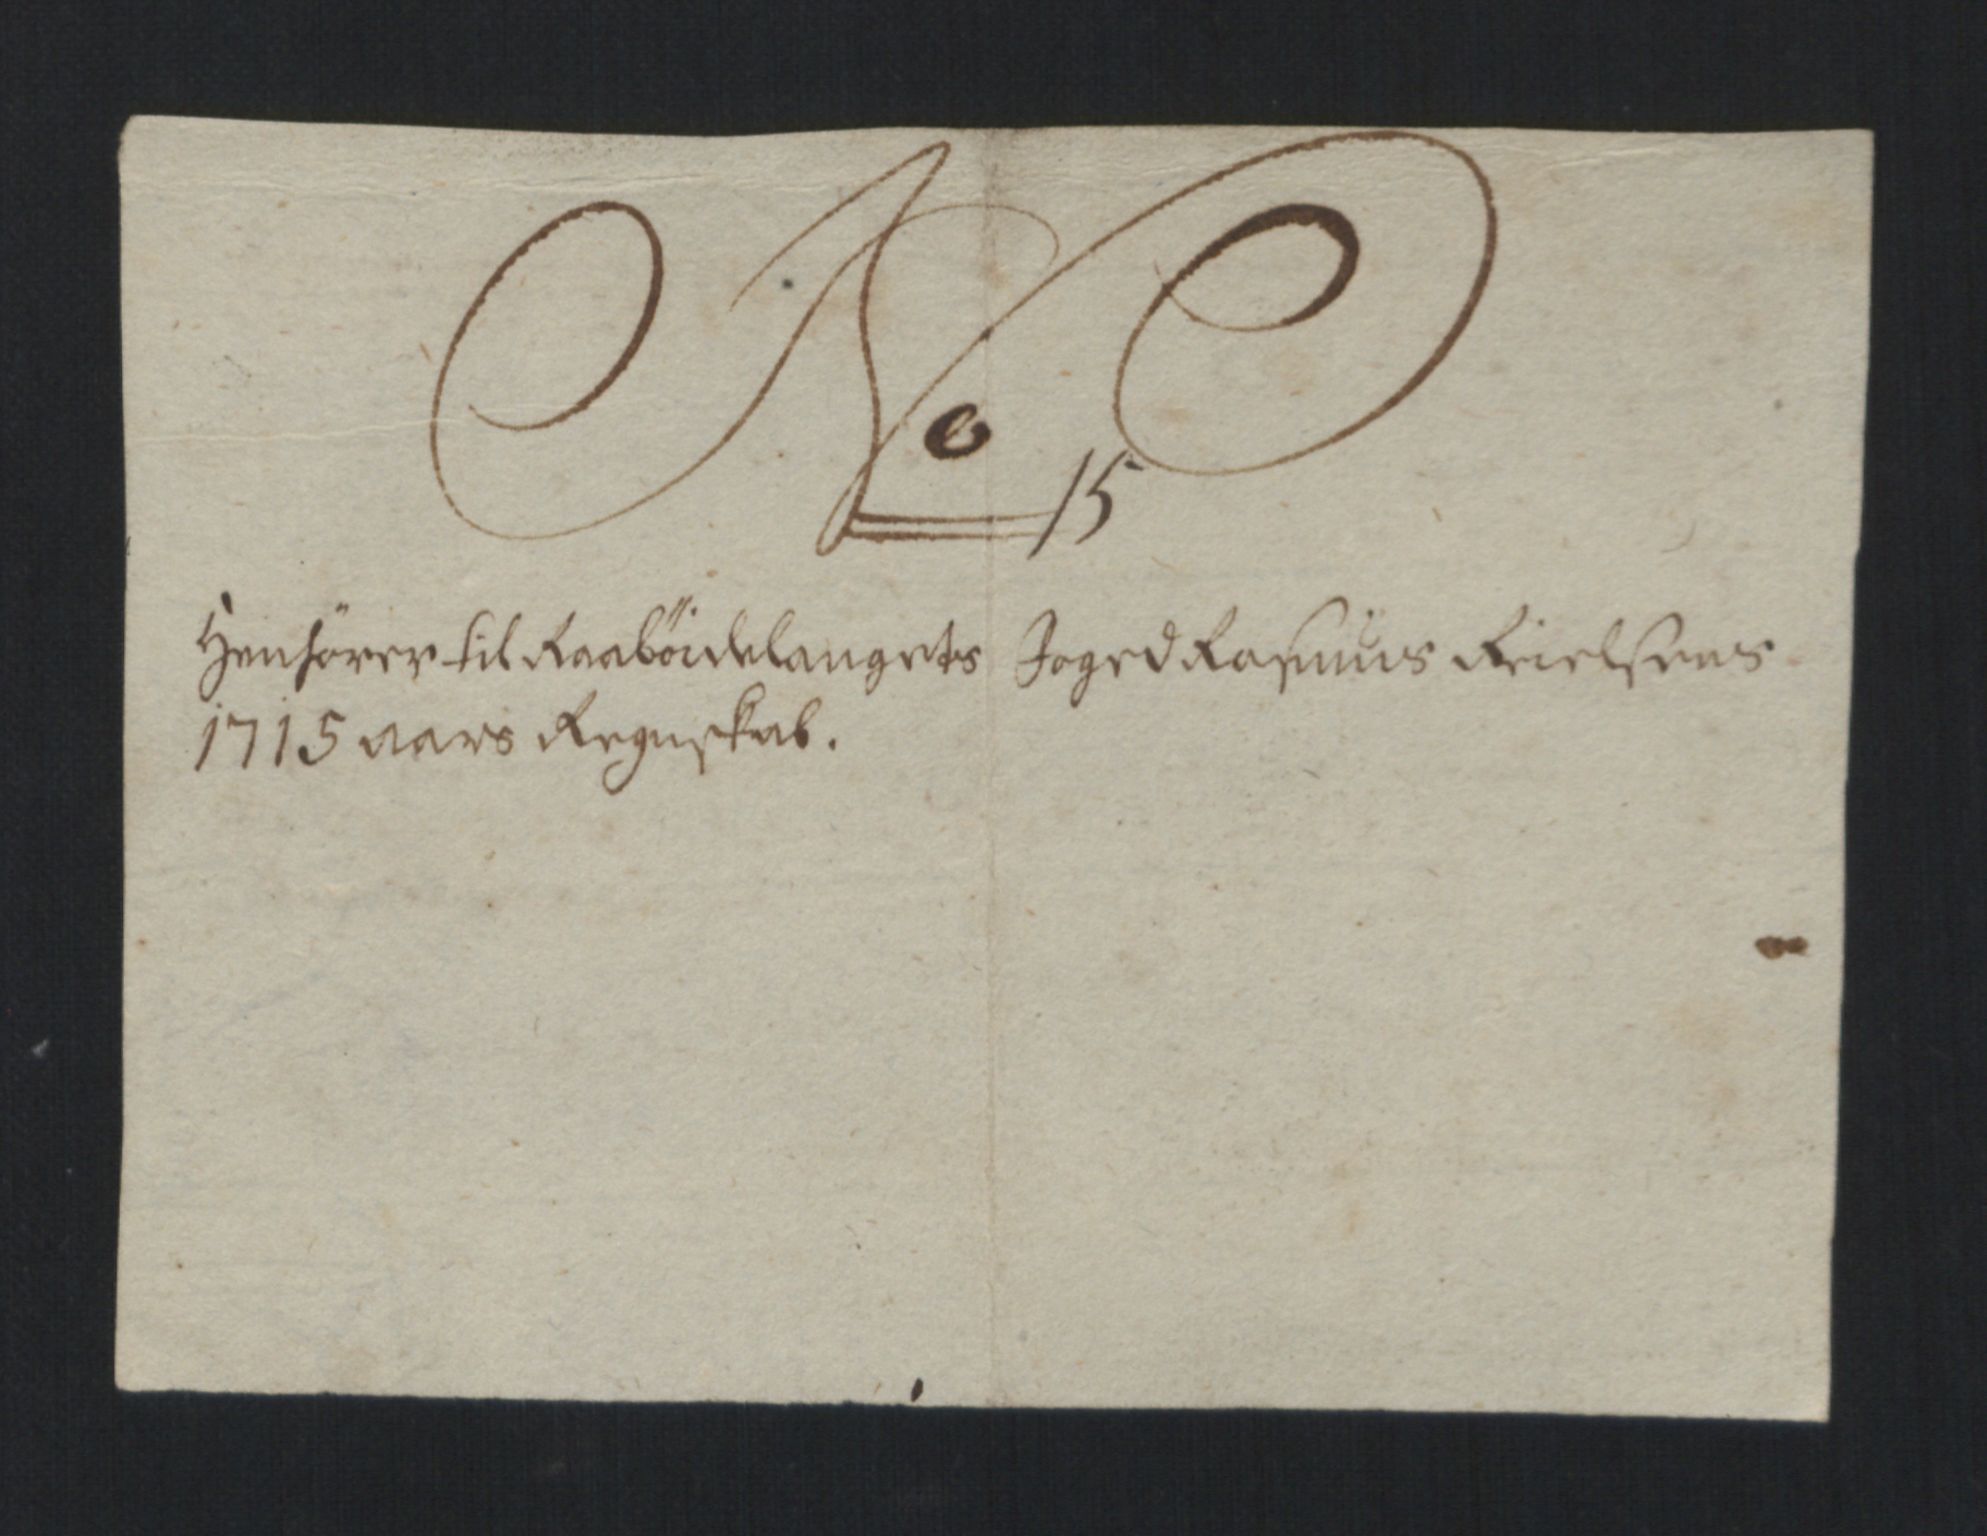 No 15
Henhörer til Raaböidelaugets Foged Rasmus Rielsens
1715 aars Regnskab.